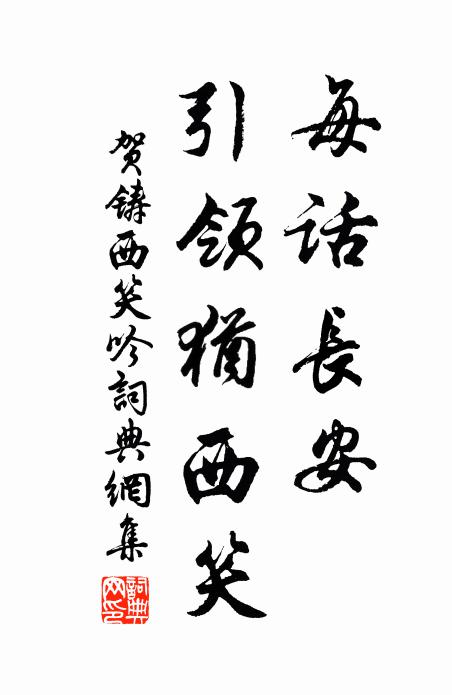 每話長安
引領猶西笑
賀鑄西笑吟詞典網集
詞典网印